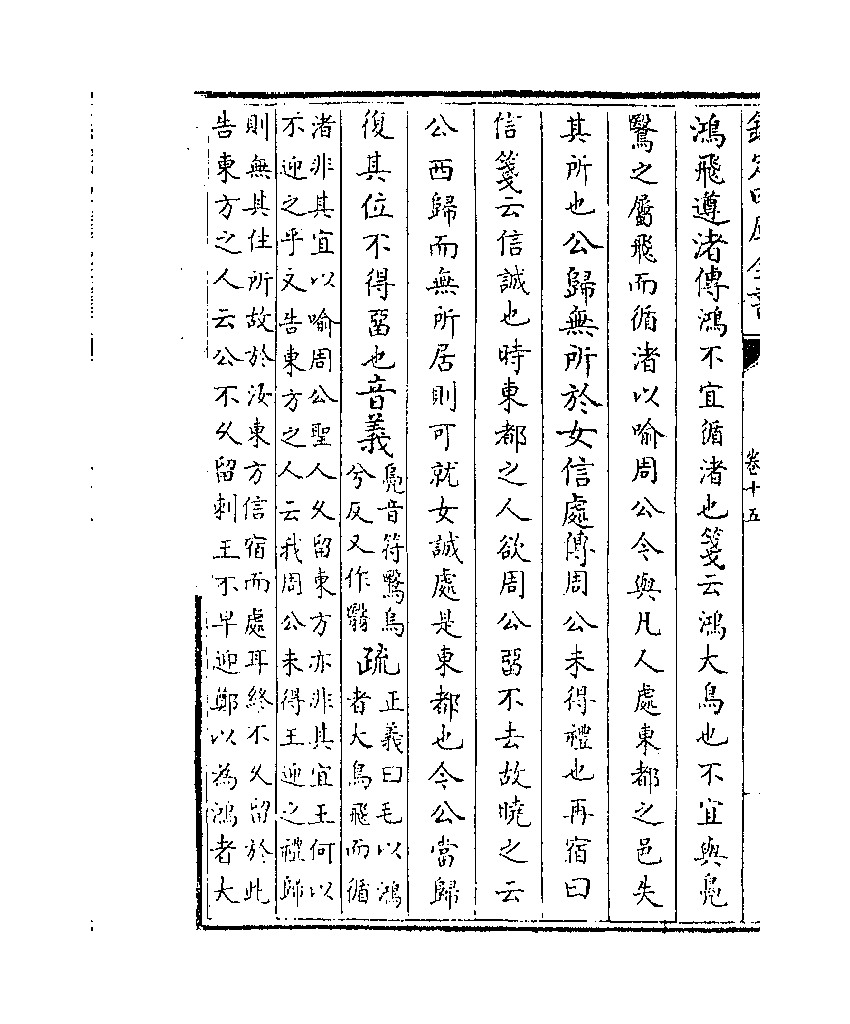 欽定四庫全書
卷十五
鴻飛遵渚傳鴻不宜循渚也箋云鴻大鳥也不宜與鳧
鷖之屬飛而循渚以喻周公今與凡人處東都之邑失
其所也公歸無所於女信處傳周公未得禮也再宿曰
信箋云信誠也時東都之人欲周公畱不去故曉之云
公西歸而無所居則可就女誠處是東都也今公當歸
復其位不得畱也音義
鳧音符鷖烏
兮反又作鷖
疏
正義曰毛以鴻
者大鳥飛而循
渚非其宜以喻周公聖人久留東方亦非其宜王何以
不迎之乎又告東方之人云我周公未得王迎之禮歸
則無其住所故於汝東方信宿而處耳終不久留於此
告東方之人云公不久留刺王不早迎鄭以為鴻者大